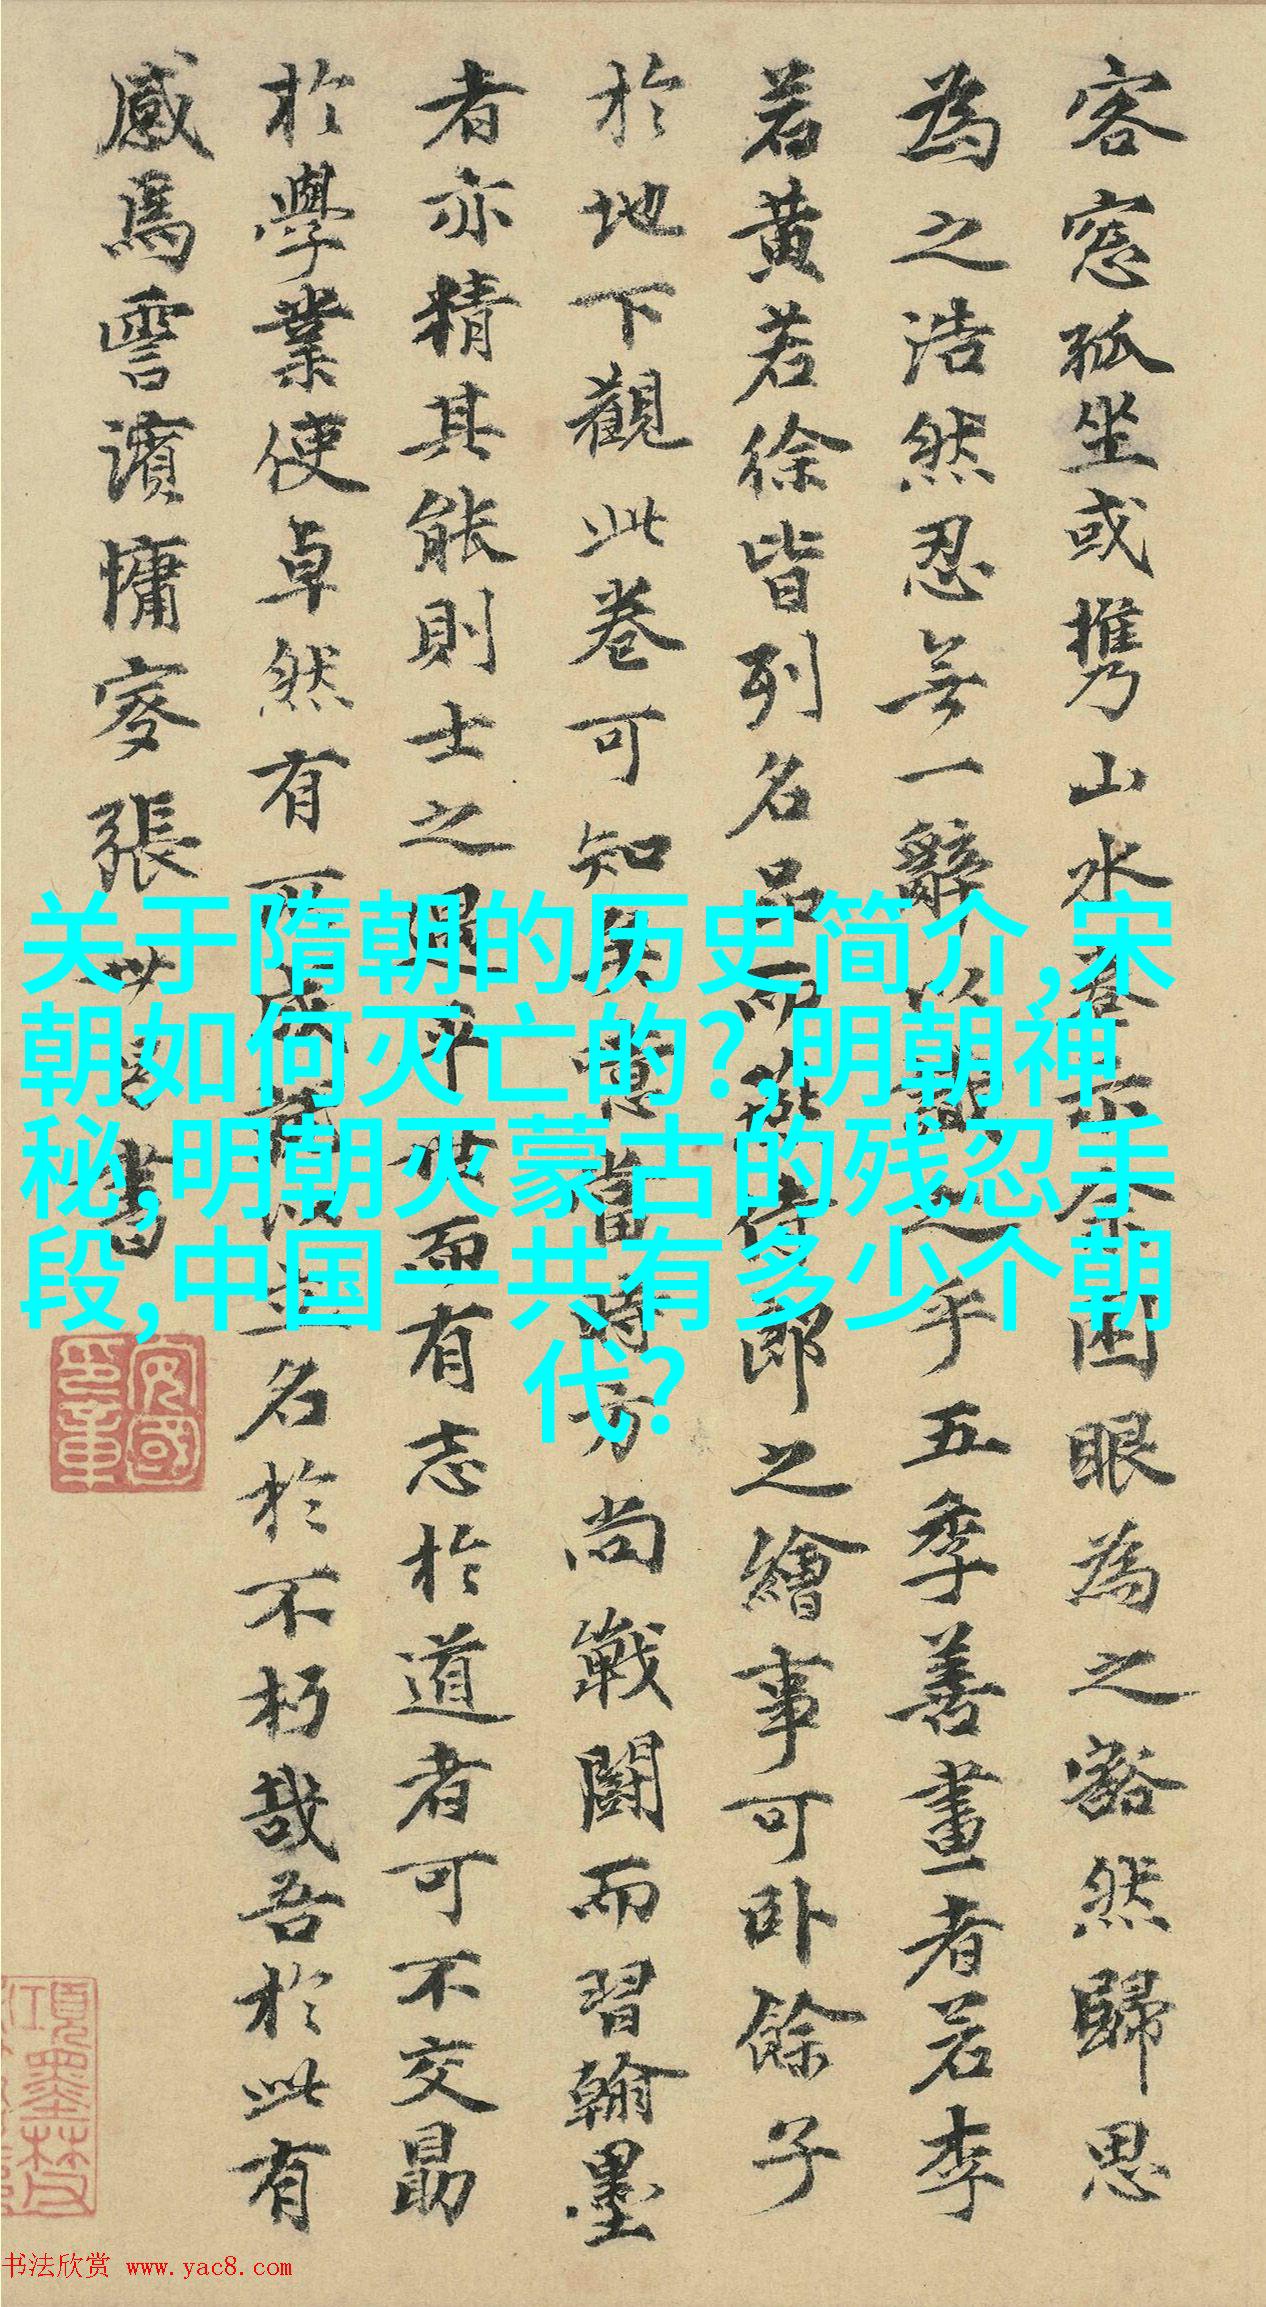 客窓孤坐或携山水卷
困眼為之豁然歸思
為之浩然忍無一辭以
之乎五季善畫者若李
若黄若徐皆列名品而
郎之繪事可卧餘子
於地下觀此卷可知
當時方尚戰鬪而習翰墨
者亦精其能則士之遇
世而有志於道者可不交勗
於學業使卓然有
名於不朽哉吾於此有
感焉雩濱慵叜張
書
关于隋朝的历史简介,宋
朝如何灭亡的?,明朝神
秘,明朝灭蒙古的残忍手
段,中国一共有多少个朝
代?
书法欣赏 www.yac8.com